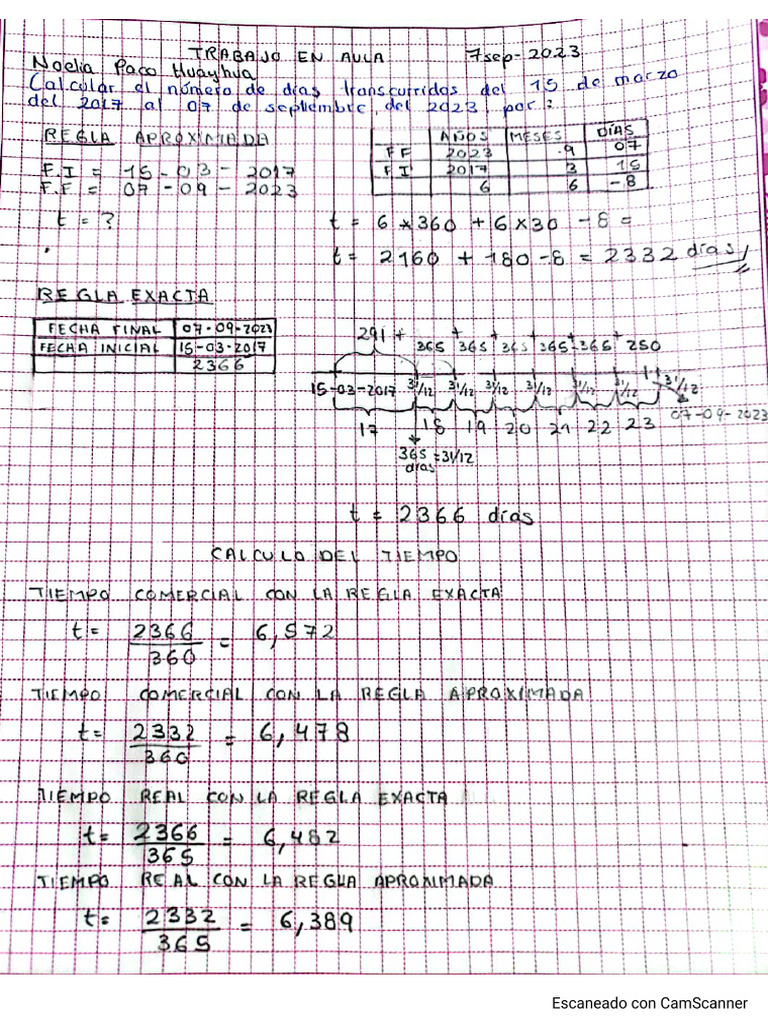 TRABAJO EN AULA 7 sep - 2023
Noelia Paco Huayhua
Calcular el número de dias transcurridos del 15 de marzo
del 2017 al 07 de septiembre del 2023 por:
REGLA APROXIMADA
F.I = 15 - 03 - 2017
F.F = 07 - 09 - 2023
t = ?
AÑOS MESES DÍAS
FF 2023 9 07
FI 2017 3 15
6 6 -8
t = 6 * 360 + 6 * 30 - 8 =
t = 2160 + 180 - 8 = 2332 días
REGLA EXACTA
FECHA FINAL 07-09-2023
FECHA INICIAL 15-03-2017
2366
291 + 365 + 365 + 365 + 365 + 365 + 250
15-03-2017 31/12 31/12 31/12 31/12 31/12 31/12 31/12
07-09-2023
17 18 19 20 21 22 23
365 = 31/12
días
t = 2366 días
CALCULO DEL TIEMPO
TIEMPO COMERCIAL CON LA REGLA EXACTA
t = 2366 = 6,572
360
TIEMPO COMERCIAL CON LA REGLA APROXIMADA
t = 2332 = 6,478
360
TIEMPO REAL CON LA REGLA EXACTA
t = 2366 = 6,482
365
TIEMPO REAL CON LA REGLA APROXIMADA
t = 2332 = 6,389
365
Escaneado con CamScanner